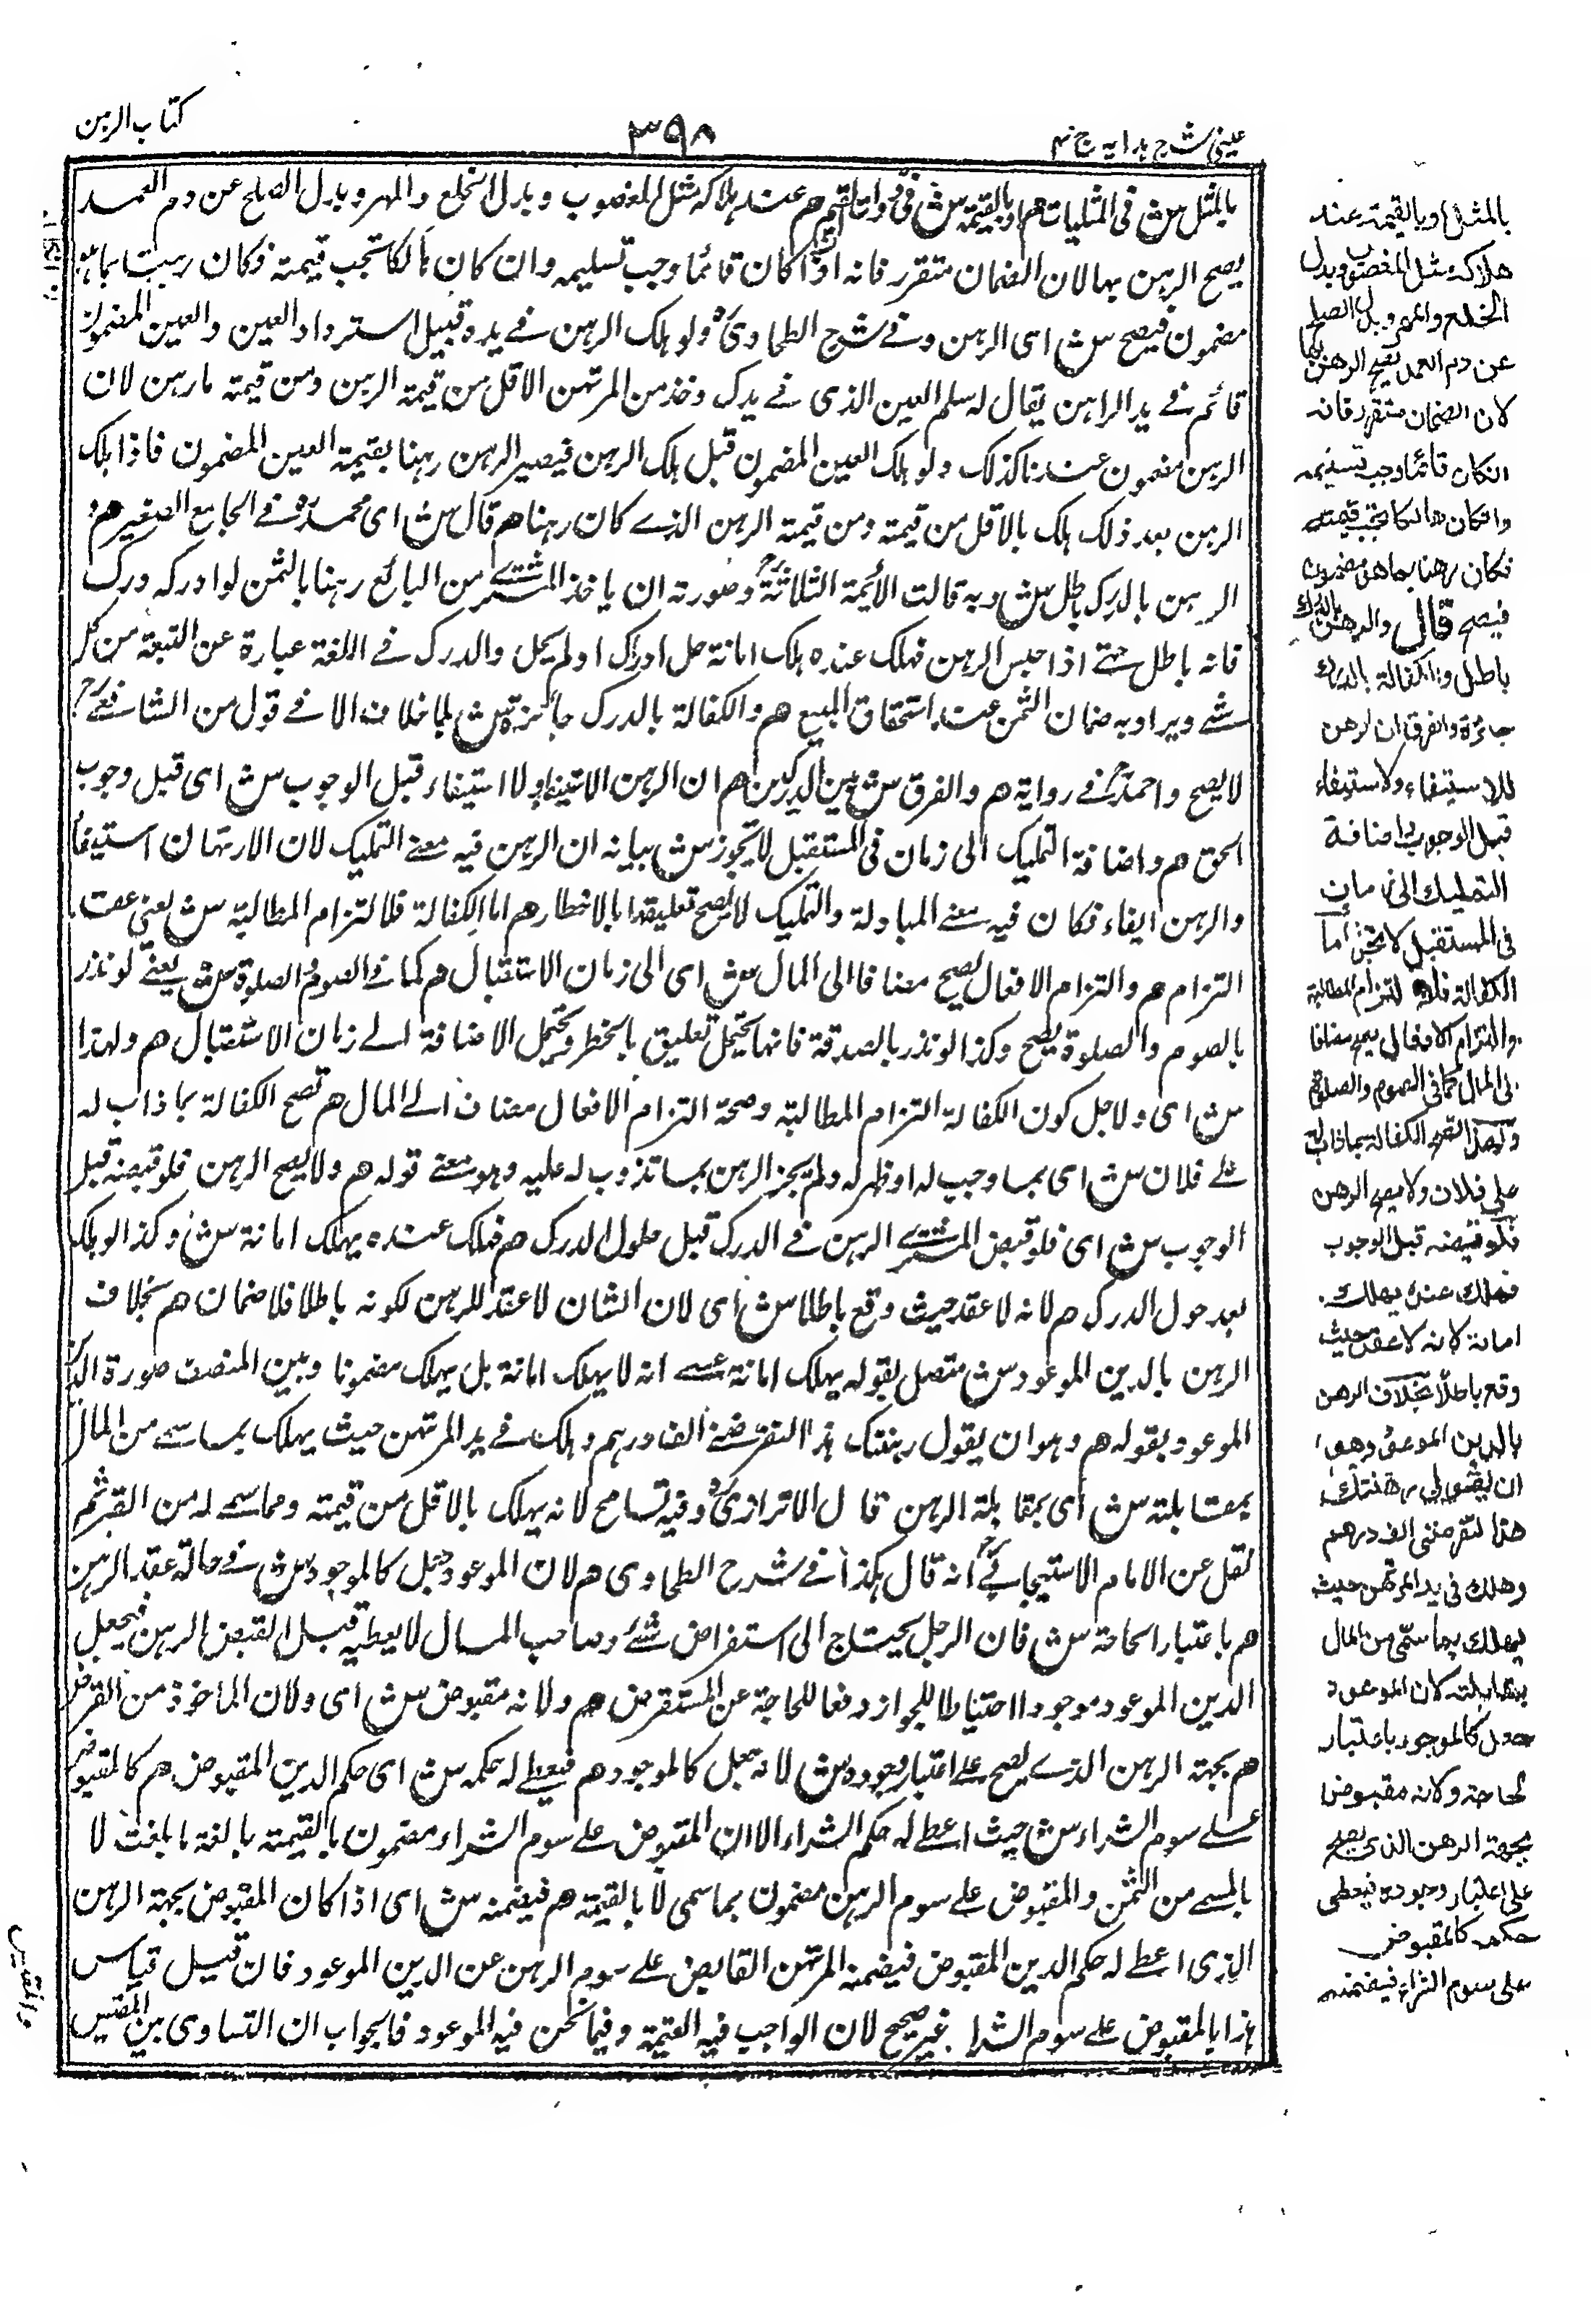 عینی شرح ہدایہ ج ۴
۳۹۸
کتاب الرہن
بالمثل ش فی المثلیات ھم او بالقیمۃ ش فی ذوات القیم ھم عند ہلاکہ مثل المغصوب و بدل الخلع والمہر و بدل الصلح عن دم العمد
یصح الرہن بہا لان الضمان متقرر فانہ اذا کان قائما وجب تسلیمہ وان کان ہالکا تجب قیمتہ فکان رہنا بما ہو
مضمون فیصح ش ای الرہن و فے شرح الطحاوی ولو ہلک الرہن فے یدہ قبیل استرداد العین والعین المضمون
قائم فے ید الراہن یقال لہ سلم العین الذی فے یدک و خذ من المرتہن الاقل من قیمۃ الرہن ومن قیمۃ ما رہن لان
الرہن مضمون عندنا کذلک ولو ہلک العین المضمون قبل ہلک الرہن فیصیر الرہن رہنا بقیمۃ العین المضمون فاذا ہلک
الرہن بعد ذلک ہلک بالاقل من قیمتہ ومن قیمۃ الرہن الذے کان رہنا ھم قال ش ای محمد فے الجامع الصغیر ھم و
الرہن بالدرک باطل ش وبہ قالت الأئمۃ الثلاثۃ وصورتہ ان یاخذ المشترے من البائع رہنا بالثمن لو ادرکہ درک
فانہ باطل حتے اذا حبس الرہن فہلک عندہ ہلک امانۃ حل ادراک او لم یحل والدرک فے اللغۃ عبارۃ عن التبعۃ من کل
شے ویراد بہ ضمان الثمن عند استحقاق المبیع ھم والکفالۃ بالدرک جائزۃ ش بلا خلاف الا فے قول من الشافعے
لا یصح واحمد فے روایۃ ھم والفرق ش بین الدرکین ھم ان الرہن للاستیفاء ولا استیفاء قبل الوجوب ش ای قبل وجوب
الحق ھم واضافۃ التملیک الی زمان فی المستقبل لا تجوز ش بیانہ ان الرہن فیہ معنے التملیک لان الارتہان استیفاء
والرہن ایفاء فکان فیہ معنے المبادلۃ والتملیک لا یصح تعلیقہا بالاخطار ھم اما الکفالۃ فلالتزام المطالبۃ ش یعنی عقد
التزام ھم والتزام الافعال یصح مضافا الی المال ش ای الی زمان الاستقبال ھم کما فے الصوم والصلوۃ ش یعنے لو نذر
بالصوم والصلوۃ یصح وکذا لو نذر بالصدقۃ فانہا یحتمل تعلیق بالخطر و تحتمل الاضافۃ الے زمان الاستقبال ھم ولہذا
ش ای ولاجل کون الکفالۃ التزام المطالبۃ وصحۃ التزام الافعال مضاف الے المال ھم تصح الکفالۃ بما ذاب لہ
علے فلان ش ای بما وجب لہ او ظہر لہ ولم یجز الرہن بما تذوب لہ علیہ وہو معنے قولہ ھم ولا یصح الرہن فلو قبضہ قبل
الوجوب ش ای فلو قبض المشترے الرہن فے الدرک قبل حلول الدرک ھم فہلک عندہ یہلک امانۃ ش وکذا لو ہلک
بعد حول الدرک ھم لانہ لا عقد حیث وقع باطلا ش ای لان الشان لا عقد للرہن لکونہ باطلا فلا ضمان ھم بخلاف
الرہن بالدین الموعود ش متصل بقولہ یہلک امانۃ عسے انہ لا یہلک امانۃ بل یہلک مضمونا وبین المنصف صورۃ الدین
الموعود بقولہ ھم وہو ان یقول رہنتک ہذا لتقرضنے الف درہم وہلک فے ید المرتہن حیث یہلک بما سمے من المال
بمقابلتہ ش ای بمقابلۃ الرہن قال الاترازی وفیہ تسامح لانہ یہلک بالاقل من قیمتہ ومما سمے لہ من القرض ثم
نقل عن الامام الاسبیجابے انہ قال ہکذا فے شرح الطحاوی ھم لان الموعود جعل کالموجود ش فے حالۃ عقد الرہن
ھم باعتبار الحاجۃ ش فان الرجل یحتاج الی استقراض شئے وصاحب المال لا یعطیہ قبل القبض الرہن فیجعل
الدین الموعود موجودا احتیاطا للجواز دفعا للحاجۃ عن المستقرض ھم ولانہ مقبوض ش ای ولان الماخوذ من القرض
ھم بجہۃ الرہن الذے یصح علے اعتبار وجودہ ش لانہ جعل کالموجود ھم فیعطے لہ حکمہ ش ای حکم الدین المقبوض ھم کالمقبوض
علے سوم الشراء ش حیث اعطے لہ حکم الشراء الا ان المقبوض علے سوم الشراء مضمون بالقیمۃ بالغۃ ما بلغت لا
بالمسمے من الثمن والمقبوض علے سوم الرہن مضمون بما سمی لا بالقیمۃ ھم فیضمنہ ش ای اذا کان المقبوض بجہۃ الرہن
الذی اعطے لہ حکم الدین المقبوض فیضمنہ المرتہن القابض علے سوم الرہن عن الدین الموعود فان قیل قیاس
ہذا بالمقبوض علے سوم الشراء غیر صحیح لان الواجب فیہ القیمۃ وفیما نحن فیہ الموعود فالجواب ان التساوی بین المقیس
بالمثل او بالقیمۃ عند
ھلاکہ مثل المغصوب وبدل
الخلع والمھر وبدل الصلح
عن دم العمد یصح الرھن بھا
لان الضمان متقرر فانہ
ان کان قائما وجب تسلیمہ
وان کان ھالکا تجب قیمتہ
فکان رھنا بما ھو مضمون
فیصح قال والرھن بالدرک
باطل والکفالۃ بالدرک
جائزۃ والفرق ان الرھن
للاستیفاء ولا استیفاء
قبل الوجوب واضافۃ
التملیک الی زمان
فی المستقبل لا تجوز اما
الکفالۃ فلالتزام المطالبۃ
والتزام الافعال یصح مضافا
الی المال کما فی الصوم والصلوۃ
ولھذا تصح الکفالۃ بما ذاب لہ
علی فلان ولا یصح الرھن
فلو قبضہ قبل الوجوب
فھلک عندہ یھلک
امانۃ لانہ لا عقد حیث
وقع باطلا بخلاف الرھن
بالدین الموعود وھو
ان یقول رھنتک
ھذا لتقرضنی الف درھم
وھلک فی ید المرتھن حیث
یھلک بما سمی من المال
بمقابلتہ لان الموعود
جعل کالموجود باعتبار
الحاجۃ ولانہ مقبوض
بجھۃ الرھن الذی یصح
علی اعتبار وجودہ فیعطی
حکمہ کالمقبوض
علی سوم الشراء فیضمنہ
والمقیس